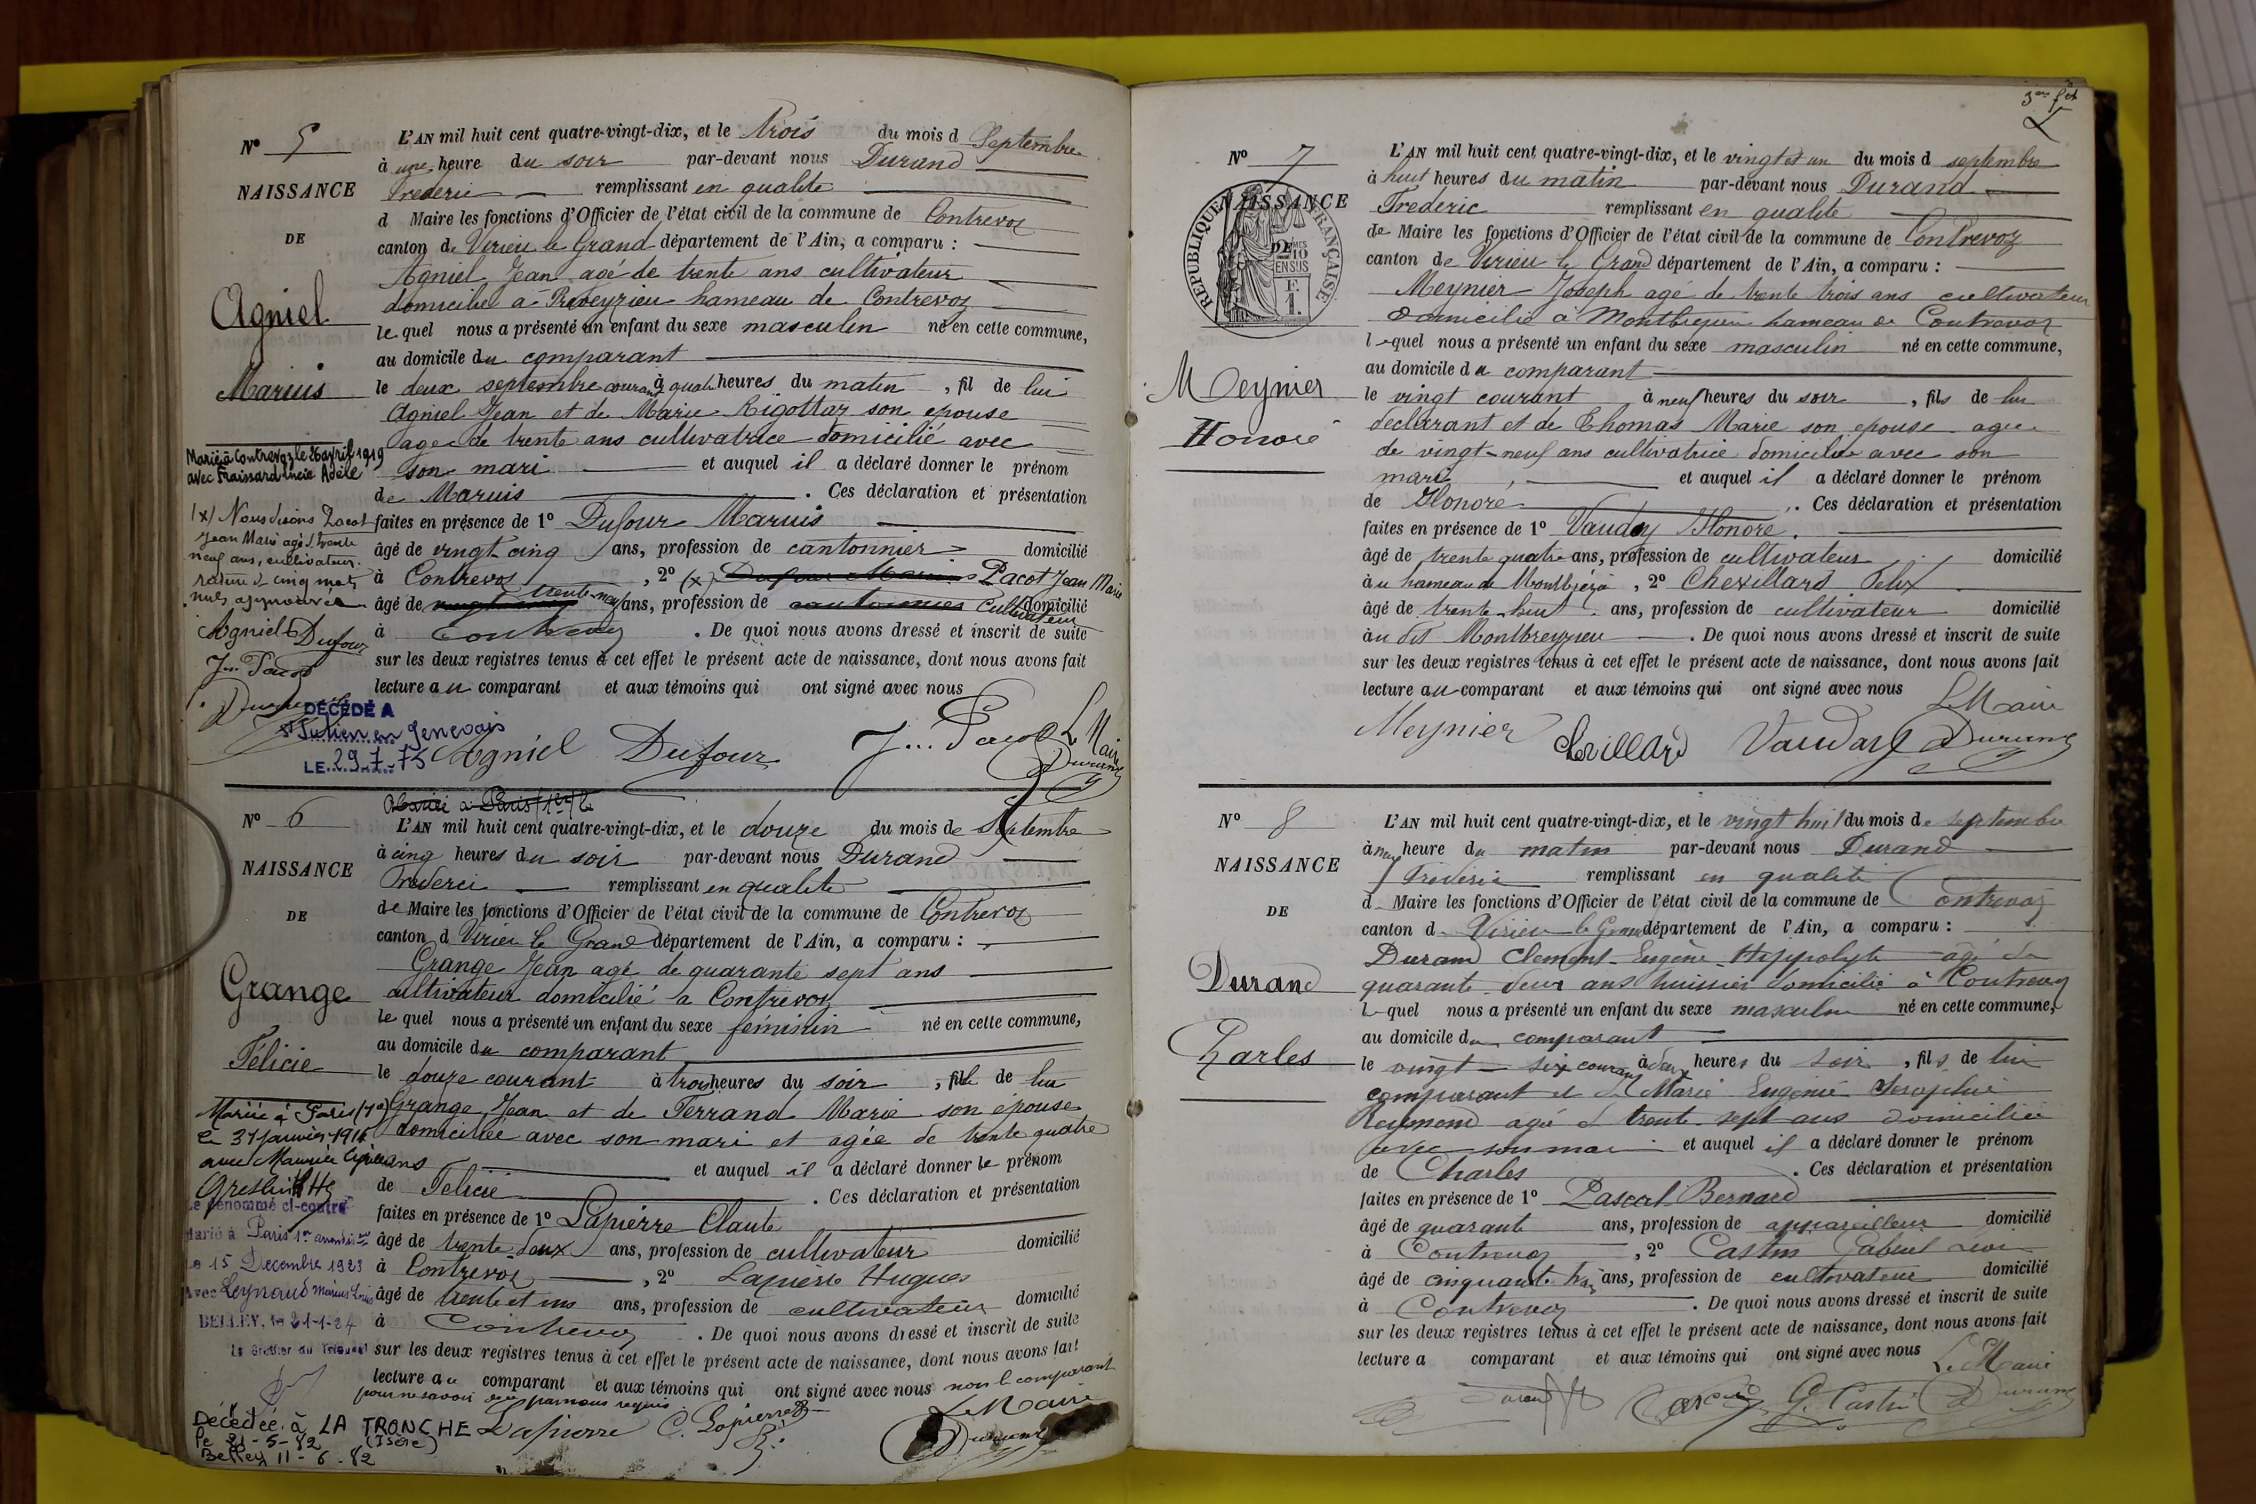 Nº 5
NAISSANCE
DE
Agniel
Marius
Marié à Contrevoz le 26 avril 1919
avec Fraissard Lucie Adèle
(x) Nous disons Pacot
Jean Marie agé d trente
neuf ans, cultivateur.
rature de cinq mots
nuls approuvée
Agniel Dufour
J... Pacot
Durand
DÉCÉDÉ A
St Julien en Genevois
LE 29.7.75
L'AN mil huit cent quatre-vingt-dix, et le trois du mois d Septembre
à une heure du soir par-devant nous Durand
Frederic remplissant en qualite
d Maire les fonctions d'Officier de l'état civil de la commune de Contrevoz
canton de Virieu le Grand département de l'Ain, a comparu :
Agniel Jean agé de trente ans cultivateur
domicilié à Preveyzieu hameau de Contrevoz
le quel nous a présenté un enfant du sexe masculin né en cette commune,
au domicile du comparant
le deux septembre courant à quatre heures du matin , fil de lui
Agniel Jean et de Marie Rigottaz son epouse
agee de trente ans cultivatrice domicilié avec
son mari et auquel il a déclaré donner le prénom
de Maruis . Ces déclaration et présentation
faites en présence de 1º Dufour Maruis
âgé de vingt cinq ans, profession de cantonnier domicilié
à Contrevoz , 2º (x) Dufour Marius Pacot Jean Marie
âgé de trente-neuf ans, profession de cantonnier cultivateur domicilié
à Contrevoz . De quoi nous avons dressé et inscrit de suite
sur les deux registres tenus à cet effet le présent acte de naissance, dont nous avons fait
lecture au comparant et aux témoins qui ont signé avec nous
Agniel Dufour J... Pacot Le Maire
Durand
Nº 6
NAISSANCE
DE
Grange
Félicie
Mariée à Paris (1er)
le 31 janvier 1916
avec Maurice
Le dénommé ci-contre
Marié à Paris 1er arrondis.
Le 15 Decembre 1923
Avec Leynaud Marius Louis
BELLEY, le 21-1-24
Le Greffier du Tribunal
Décédée à LA TRONCHE
le 21-5-82 (Isère)
Belley 11-6-82
Mariée à Paris (1er) le
L'AN mil huit cent quatre-vingt-dix, et le douze du mois de Septembre
à cinq heures du soir par-devant nous Durand
Frederic remplissant en qualite
de Maire les fonctions d'Officier de l'état civil de la commune de Contrevoz
canton d Virieu le Grand département de l'Ain, a comparu :
Grange Jean agé de quarante sept ans
cultivateur domicilié a Contrevoz
le quel nous a présenté un enfant du sexe féminin né en cette commune,
au domicile du comparant
le douze courant à trois heures du soir , fille de lui
Grange Jean et de Ferrand Marie son épouse
domiciliée avec son mari et agée de trente quatre
ans et auquel il a déclaré donner le prénom
de Felicie . Ces déclaration et présentation
faites en présence de 1º Lapierre Claude
âgé de trente-deux ans, profession de cultivateur domicilié
à Contrevoz , 2º Lapierre Hugues
âgé de trente et un ans, profession de cultivateur domicilié
à Contrevoz . De quoi nous avons dressé et inscrit de suite
sur les deux registres tenus à cet effet le présent acte de naissance, dont nous avons fait
lecture au comparant et aux témoins qui ont signé avec nous non le comparant
pour ne savoir de ce par nous requis
Le Maire
Lapierre C. Lapierre Durand
3me ft
Nº 7
NAISSANCE
DE
RÉPUBLIQUE FRANÇAISE
2 10
EN SUS
F.
1.
Meynier
Honoré
L'AN mil huit cent quatre-vingt-dix, et le vingt et un du mois d septembre
à huit heures du matin par-devant nous Durand
Frederic remplissant en qualite
de Maire les fonctions d'Officier de l'état civil de la commune de Contrevoz
canton de Virieu le Grand département de l'Ain, a comparu :
Meynier Joseph agé de trente trois ans cultivateur
domicilié à Montbreyzieu hameau de Contrevoz
lequel nous a présenté un enfant du sexe masculin né en cette commune,
au domicile du comparant
le vingt courant à neuf heures du soir , fils de lui
declarant et de Thomas Marie son epouse agée
de vingt-neuf ans cultivatrice domiciliée avec son
mari et auquel il a déclaré donner le prénom
de Honoré . Ces déclaration et présentation
faites en présence de 1º Vauday Honoré
âgé de trente quatre ans, profession de cultivateur domicilié
à u hameau de , 2º Chevillard Felix
âgé de trente-huit ans, profession de cultivateur domicilié
à u dit Montbreyzieu . De quoi nous avons dressé et inscrit de suite
sur les deux registres tenus à cet effet le présent acte de naissance, dont nous avons fait
lecture au comparant et aux témoins qui ont signé avec nous
Le Maire
Meynier Chevillard Vauday Durand
Nº 8
NAISSANCE
DE
Durand
Charles
L'AN mil huit cent quatre-vingt-dix, et le vingt huit du mois de septembre
à neuf heure du matin par-devant nous Durand
Frederic remplissant en qualité
d Maire les fonctions d'Officier de l'état civil de la commune de Contrevoz
canton d Virieu le Grand département de l'Ain, a comparu :
Durand Clement Eugène Hippolyte agé de
quarante deux ans huissier domicilié à Contrevoz
lequel nous a présenté un enfant du sexe masculin né en cette commune,
au domicile du comparant
le vingt-six courant à deux heures du soir , fils de lui
comparant et de Marie Eugénie Seraphie
Reymond agée de trente-sept ans domiciliée
avec son mari et auquel il a déclaré donner le prénom
de Charles . Ces déclaration et présentation
faites en présence de 1º Pascal Bernard
âgé de quarante ans, profession de appareilleur domicilié
à Contrevoz , 2º Castin Gabriel
âgé de cinquante trois ans, profession de cultivateur domicilié
à Contrevoz . De quoi nous avons dressé et inscrit de suite
sur les deux registres tenus à cet effet le présent acte de naissance, dont nous avons fait
lecture a comparant et aux témoins qui ont signé avec nous
Le Maire
Durand Pascal G. Castin Durand